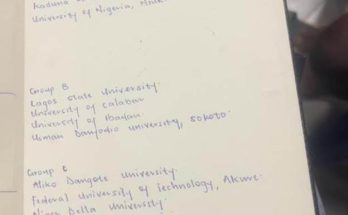 Kaduna
University of Nigeria,
Group B
Lagos State University
University of Calabar
University of Ibadan
Usman Danfodio University, Sokoto
Group C
Aliko Dangote University
Federal University of Technology, Akure
Niger Delta University